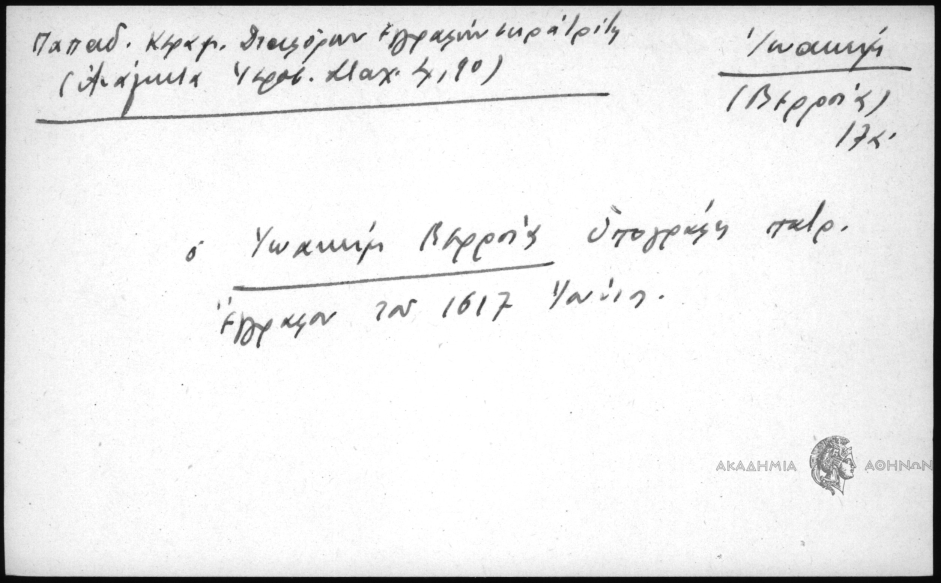 Παπαδ. Κεραμ. Διαφόρων Ἐγγράφων
(Ἀνάλεκτα Ἱεροσ. Σταχ. 4, 90)
Ἰωακείμ
(Βερροίας)
17 αἰ.
ὁ Ἰωακείμ Βερροίας ὑπογράφει πατρ.
ἔγγραφον τοῦ 1617 Ἰουνίου.
ΑΚΑΔΗΜΙΑ ΑΘΗΝΩΝ